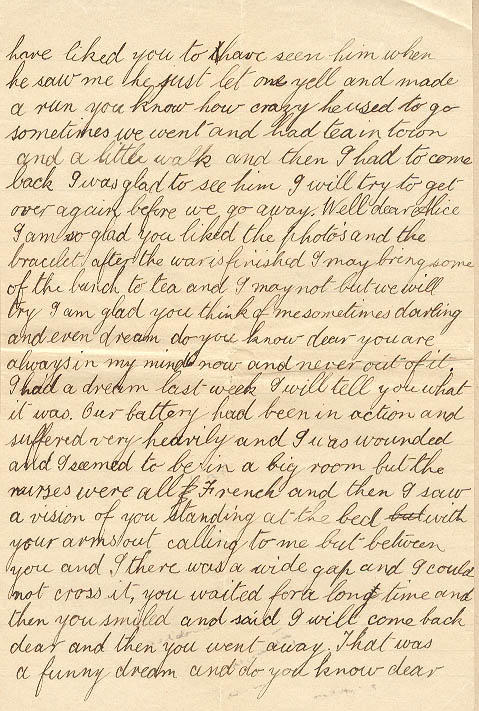 have liked you to have seen him when
he saw me he just let one yell and made
a run you know how crazy he used to go
sometimes we went and had tea in town
and a little walk and then I had to come
back I was glad to see him I will try to get
over again before we go away. Well dear Alice
I am so glad you liked the photo's and the
bracelet, after the war is finished I may bring some
of the bunch to tea and I may not but we will
try I am glad you think of me sometimes darling
and even dream do you know dear you are
always in my mind now and never out of it.
I had a dream last week I will tell you what
it was. Our battery had been in action and
suffered very heavily and I was wounded
and I seemed to be in a big room but the
nurses were all French and then I saw
a vision of you standing at the bed but with
your arms out calling to me but between
you and I there was a wide gap and I could
not cross it, you waited for a long time and
then you smiled and said I will come back
dear and then you went away. That was
a funny dream and do you know dear